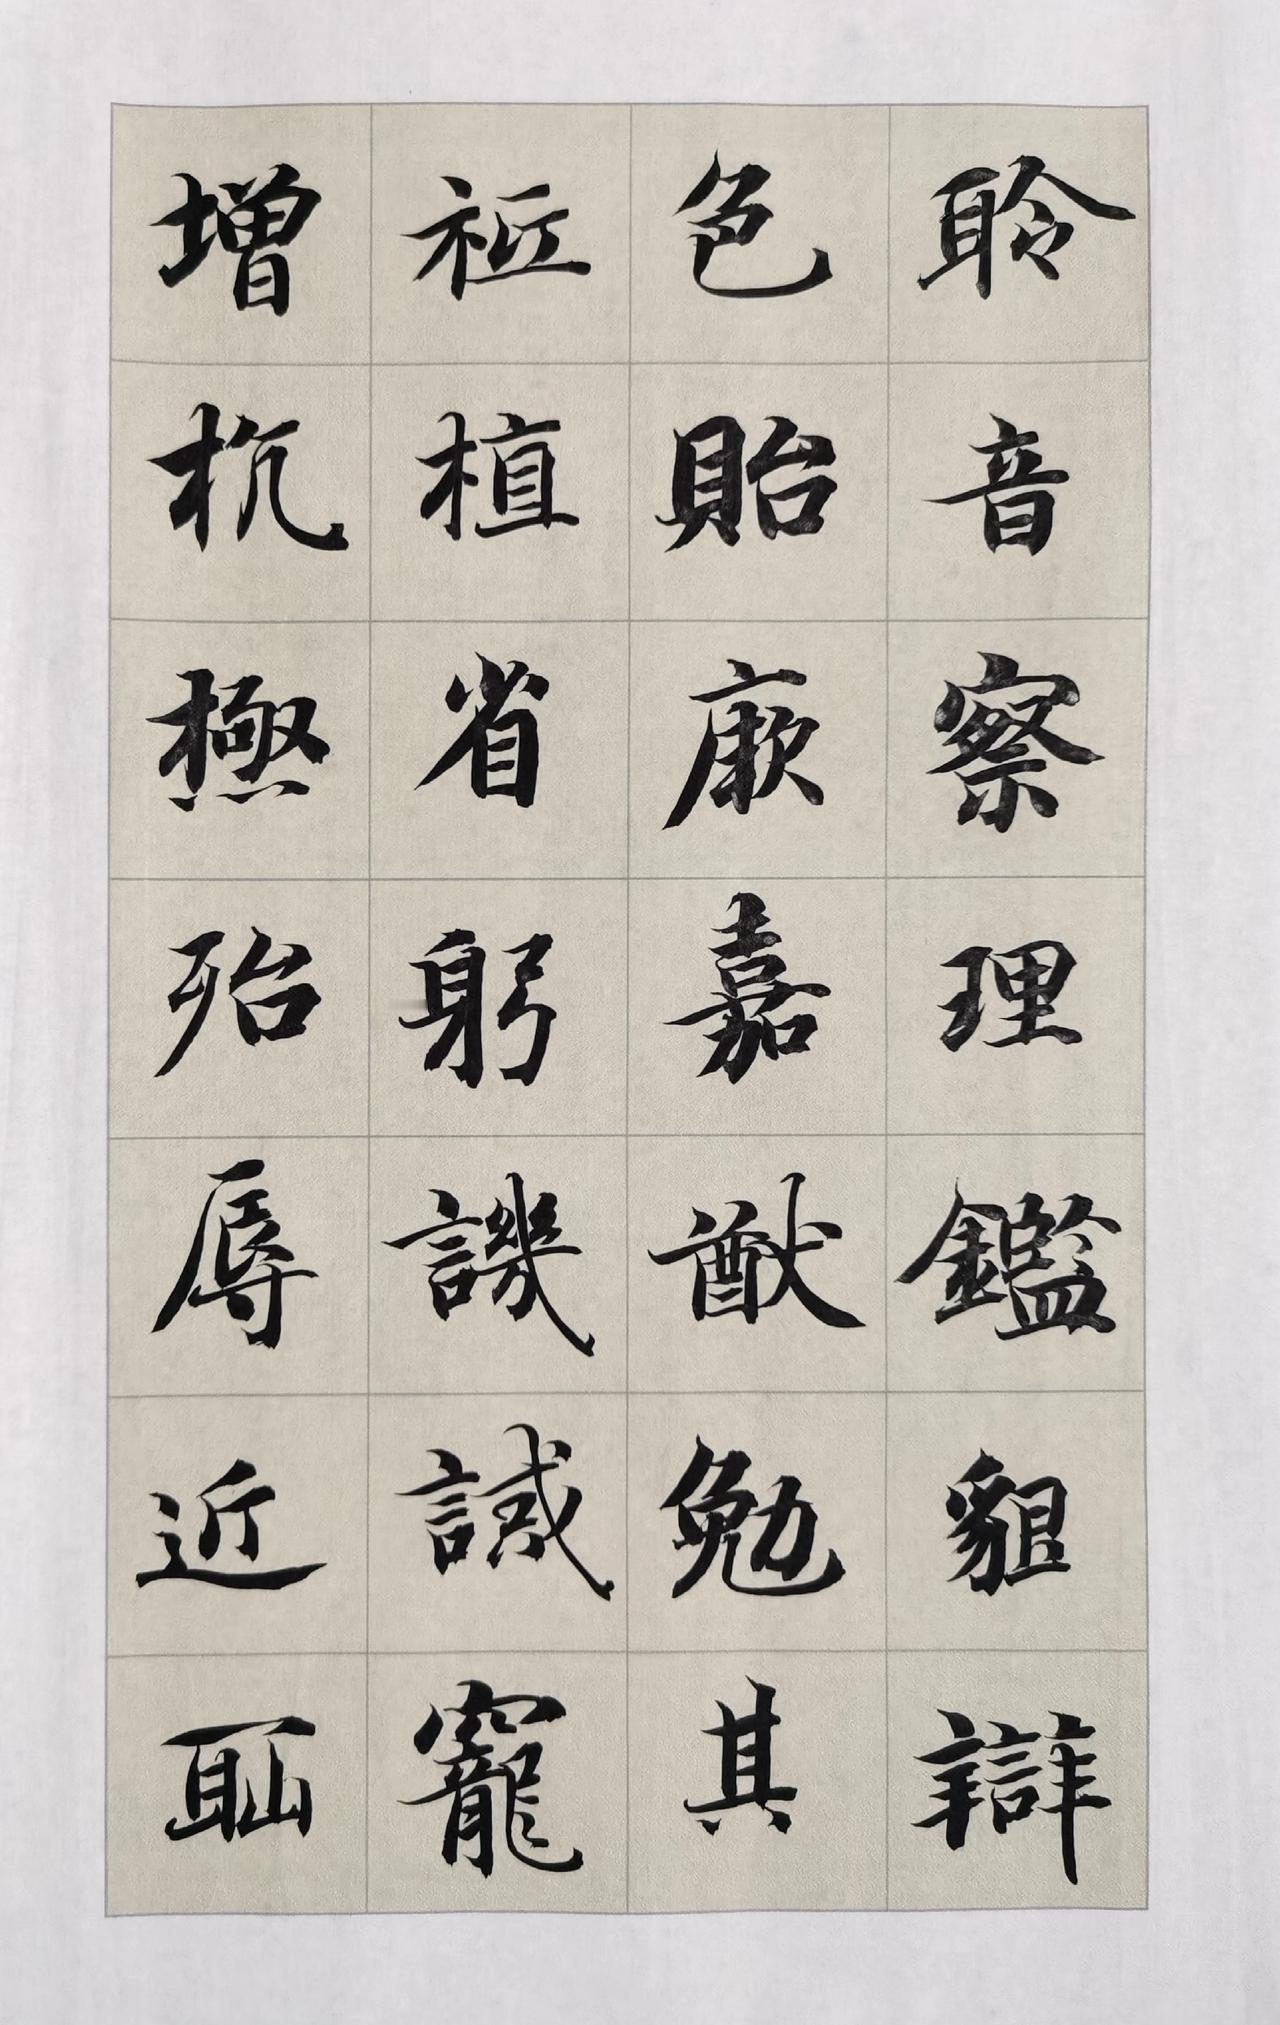 聆音察理鑑貌辯
色貽厥嘉猷勉其
祗植省躬譏誡寵
增抗極殆辱近恥